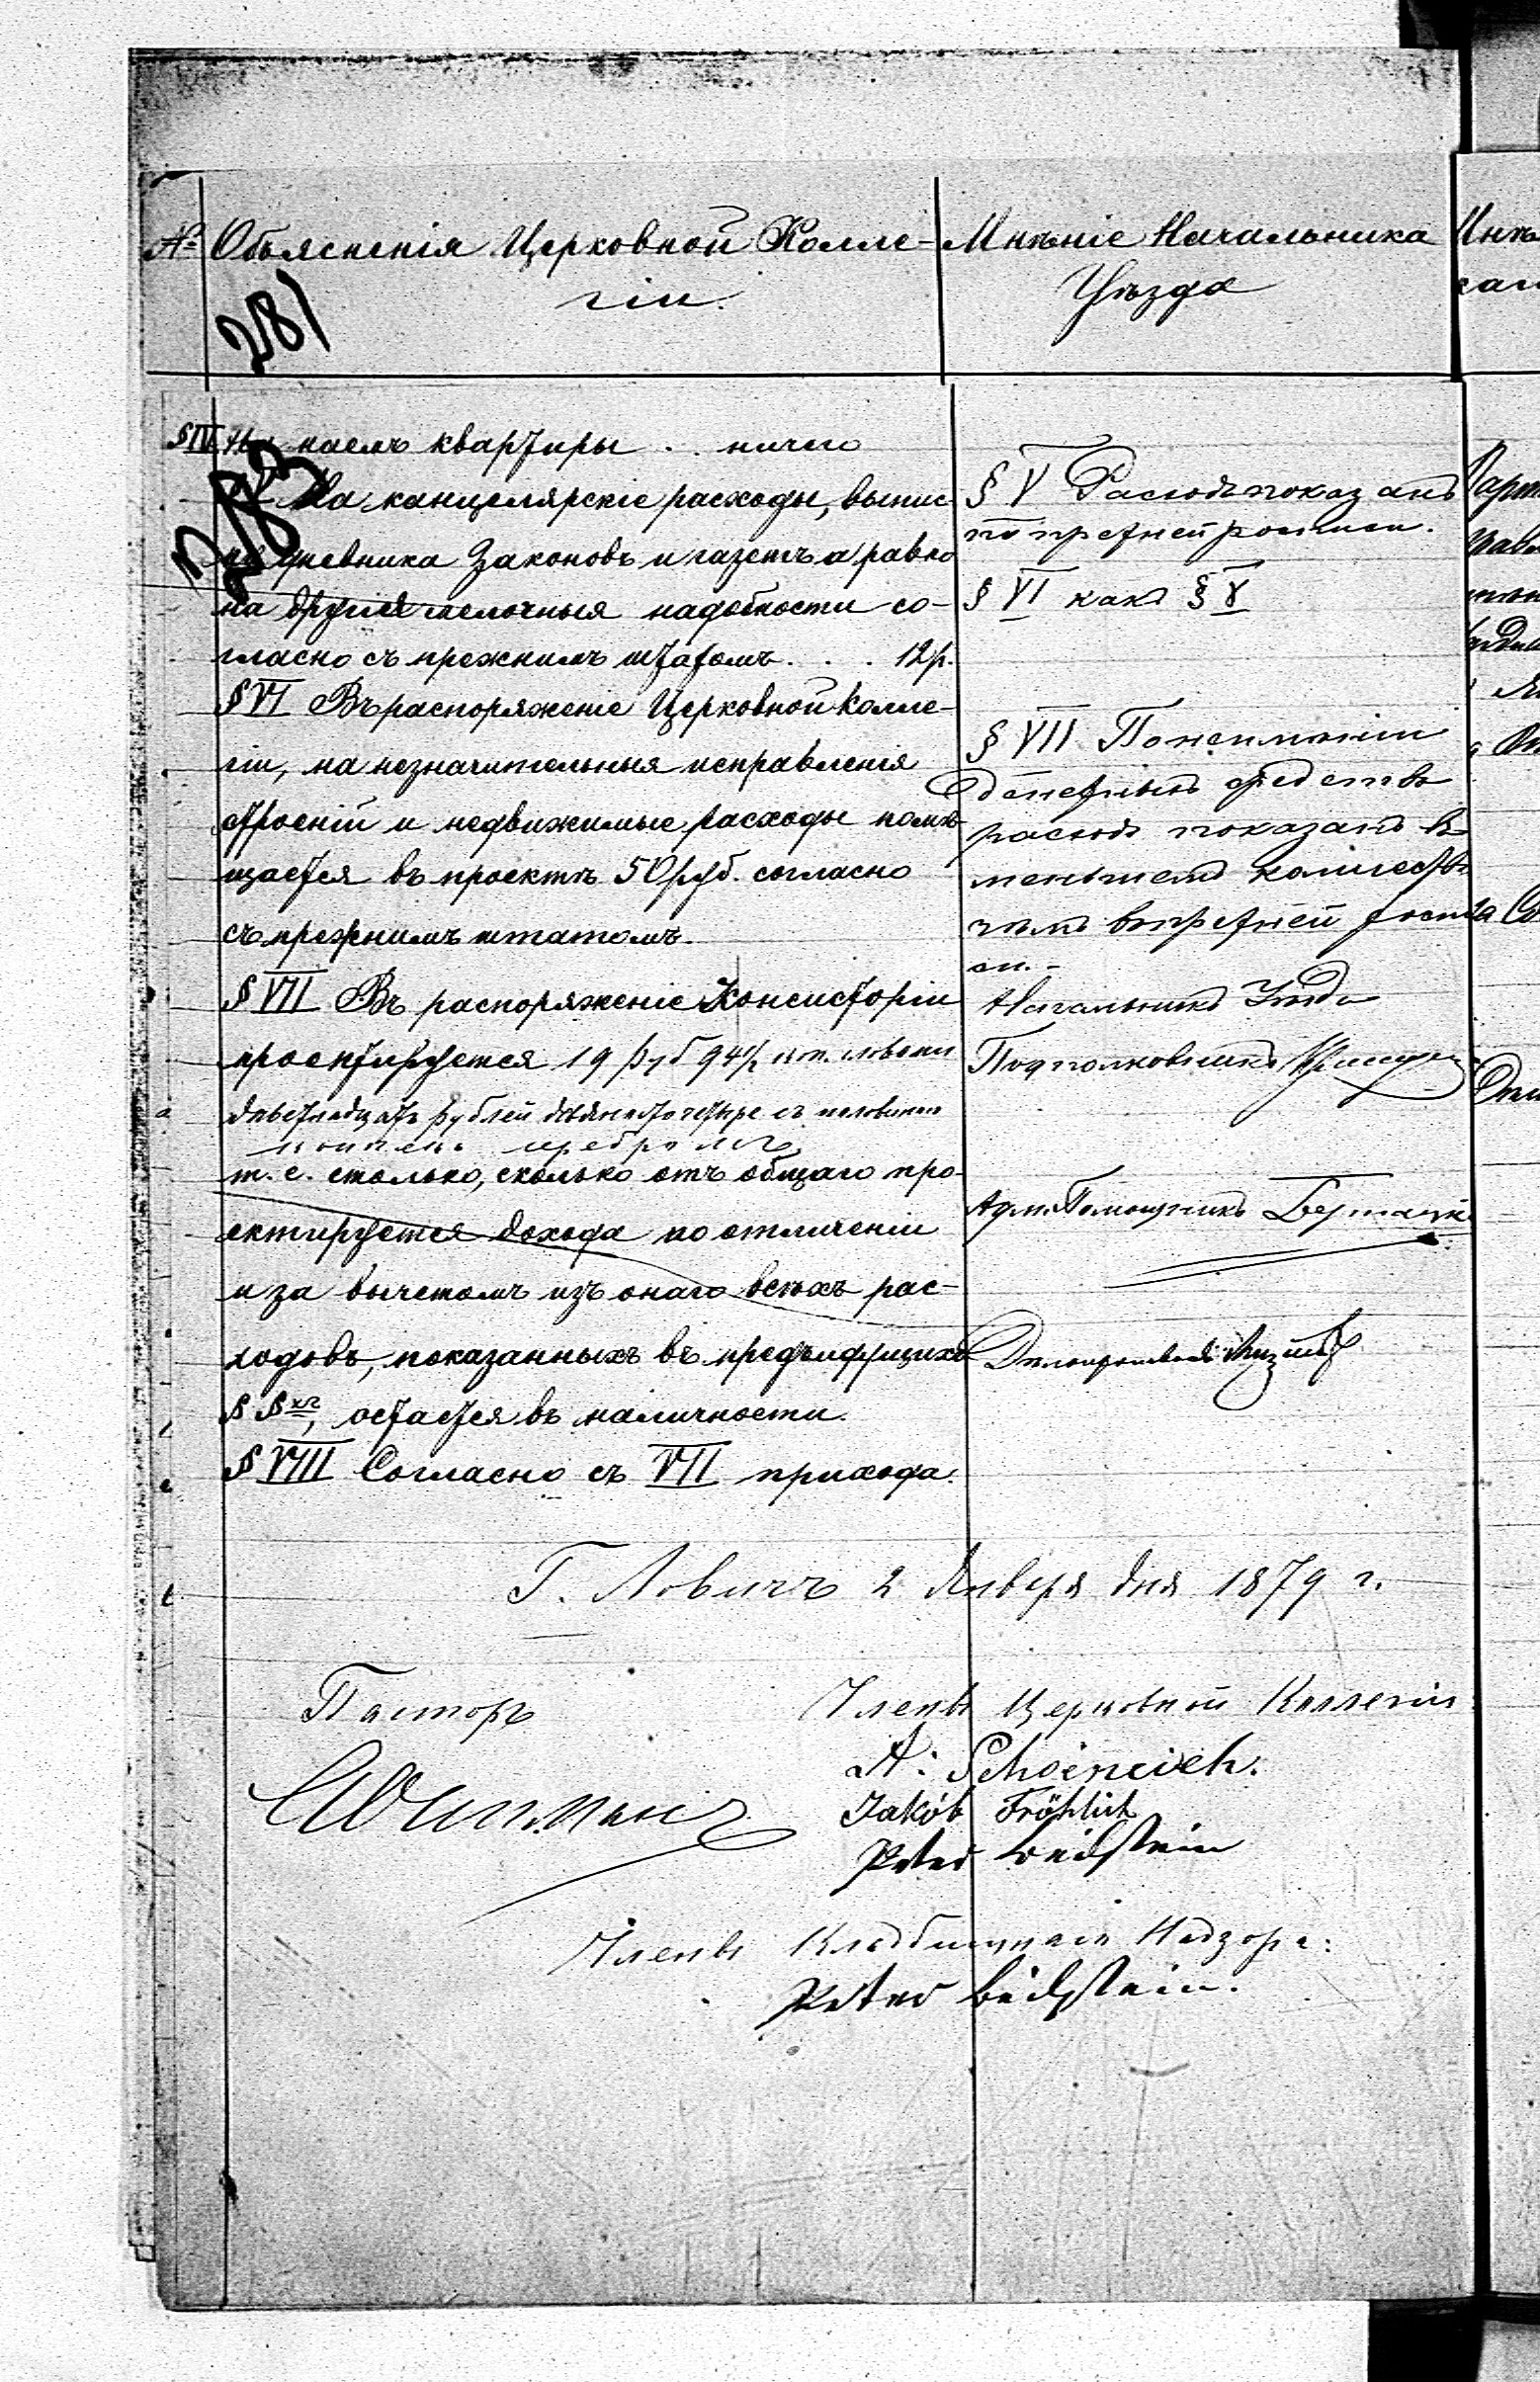 № Объясненія Церковной Колле-
гіи.
281
§ IV На наемъ квартиры . . ничего
283
На канцелярскіе расходы, выпис
ку дневника Законовъ и газетъ а равно
на другія мелочныя надобности со-
гласно съ прежнимъ штатомъ . . . 12 р.
§ VI Въ распоряженіе Церковной Колле-
гіи, на незначительныя исправленія
строеній и недвижимые расходы помѣ-
щается въ проектѣ 50 руб. согласно
съ прежнимъ штатомъ.
§ VII Въ распоряженіе Консисторіи
проектируется 19 руб 94½ коп.
рублей девяносто четыре съ половиной
копѣекъ серебромъ
т. е. столько, сколько отъ общаго про-
ектируется дохода по отличеніи
и за вычетомъ изъ онаго всѣхъ рас-
ходовъ, показанныхъ въ предъидущихъ
§ §хъ, остается въ наличности.
§ VIII Согласно съ VII прихода.
Мнѣніе Начальника
Уѣзда
§ V Расходъ показанъ
по прежней росписи.
§ VI какъ § V
§ VII По неимѣнію
денежныхъ средствъ
расходъ показанъ въ
меньшемъ количествѣ
чѣмъ въ прежней роспи
си.-
Начальникъ Уѣзда
Подполковникъ
Адм. Помощникъ
Дѣлопроизводъ
Г. Ловичъ 2 Января дня 1879 г.
Пасторъ
Члены Церковной Коллегіи
A. Schoeneich.
Jakób Fröhlich
Peter Beilstein
Члены Кладбищнаго Надзора:
Peter Beilstein.